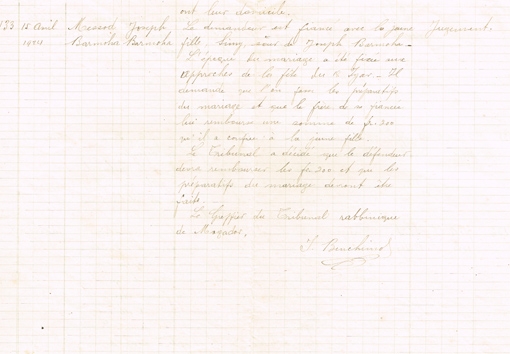 ont leur domicile.
133 15 Avril Messod Joseph Le demandeur est fiancé avec la jeune Jugement
Barmoha Barmoha fille, Simy, sœur de Joseph Barmoha.
L'époque du mariage a été fixée aux
approches de la fête du Iyar. Il
demande que l'on fasse les préparatifs
du mariage et que le frère de sa fiancée
lui rembourse une somme de fr: 300
qu'il a confiée à la jeune fille.
Le Tribunal a décidé que le défendeur
devra rembourser les fr: 300 et que les
préparatifs du mariage devront être
faits.
Le Greffier du Tribunal rabbinique
de Mogador.